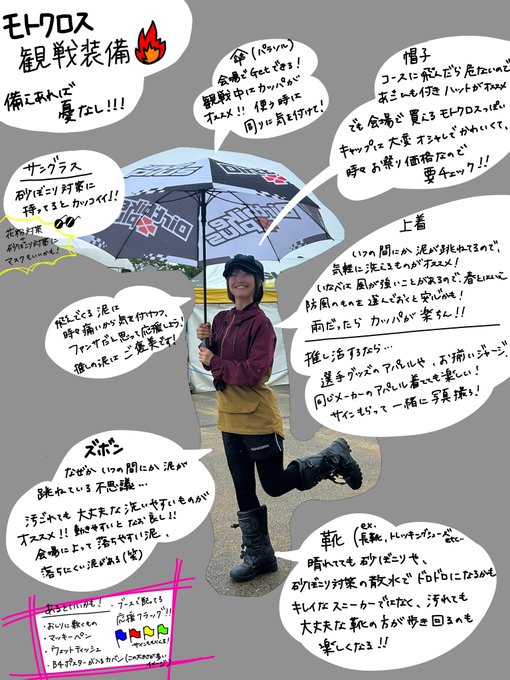 モトクロス
観戦装備
備えあれば
憂なし!!!
傘(パラソル)
会場でGetできる!
観戦中にカッパが
オススメ!! 使う時は
周りに気を付けて!
帽子
コースに飛んだら危ないので
あごひも付きハットがオススメ
でも会場で買えるモトクロスっぽい
キャップは大変オシャレでかわいくて、
時々お祭り価格なので
要チェック!!
サングラス
砂ぼこり対策に
持ってるとカッコイイ!!
花粉対策
砂ぼこり対策に
マスクもいいかも!
上着
いつの間にか泥が跳ねてるので、
気軽に洗えるものがオススメ!
いなべは風が強いことがあるので、春とはいえ
防風のものを選んでおくと安心かも!
雨だったらカッパが楽ちん!!
推し活するなら…
選手グッズのアパレルや、お揃いジャージ、
同じメーカーのアパレル着てても楽しい!
サインもらって一緒に写真撮ろ!
飛んでくる泥は
時々痛いから気を付けつつ、
ファンサだと思って応援しよう!
推しの泥はご褒美です!
ズボン
なぜかいつの間にか泥が
跳ねている不思議…
汚れても大丈夫な洗いやすいものが
オススメ!! 動きやすいとなお良し!!
会場によって落ちやすい泥、
落ちにくい泥がある(笑)
靴(ex. 長靴、トレッキングシューズ etc…
晴れてても砂ぼこりや、
砂ぼこり対策の散水でドロドロになるかも
キレイなスニーカーではなく、汚れても
大丈夫な靴の方が歩き回るのも
楽しくなる!!
あるといいかも!
・おしりに敷くもの
・マッキーペン
・ウェットティッシュ
・B4ポスターが入るカバン(この大きさが多いイメージ)
・ブースで配ってる
応援フラッグ!!
サインももらえる!